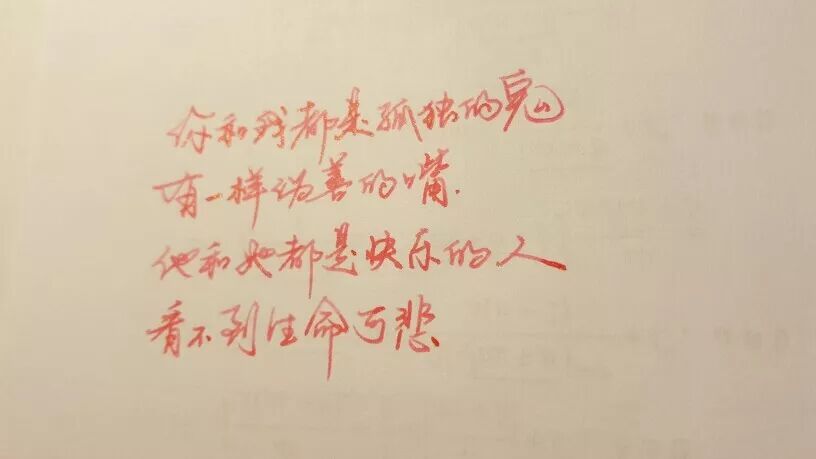 你和我都是孤独的鬼
有一样伪善的嘴.
他和她都是快乐的人
看不到生命可悲